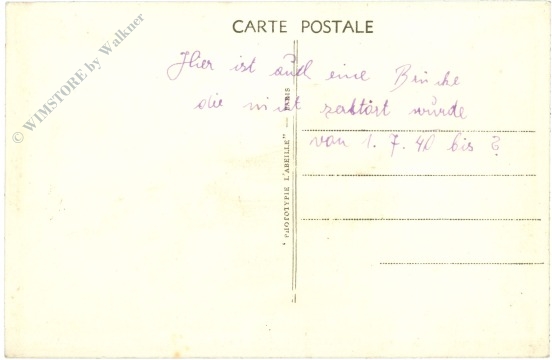 CARTE POSTALE
© WIMSTORE by Walkner
Hier ist auch eine Brücke
die nicht zerstört wurde
von 1. 7. 40 bis ?
"PHOTOTYPIE L'ABEILLE" — PARIS